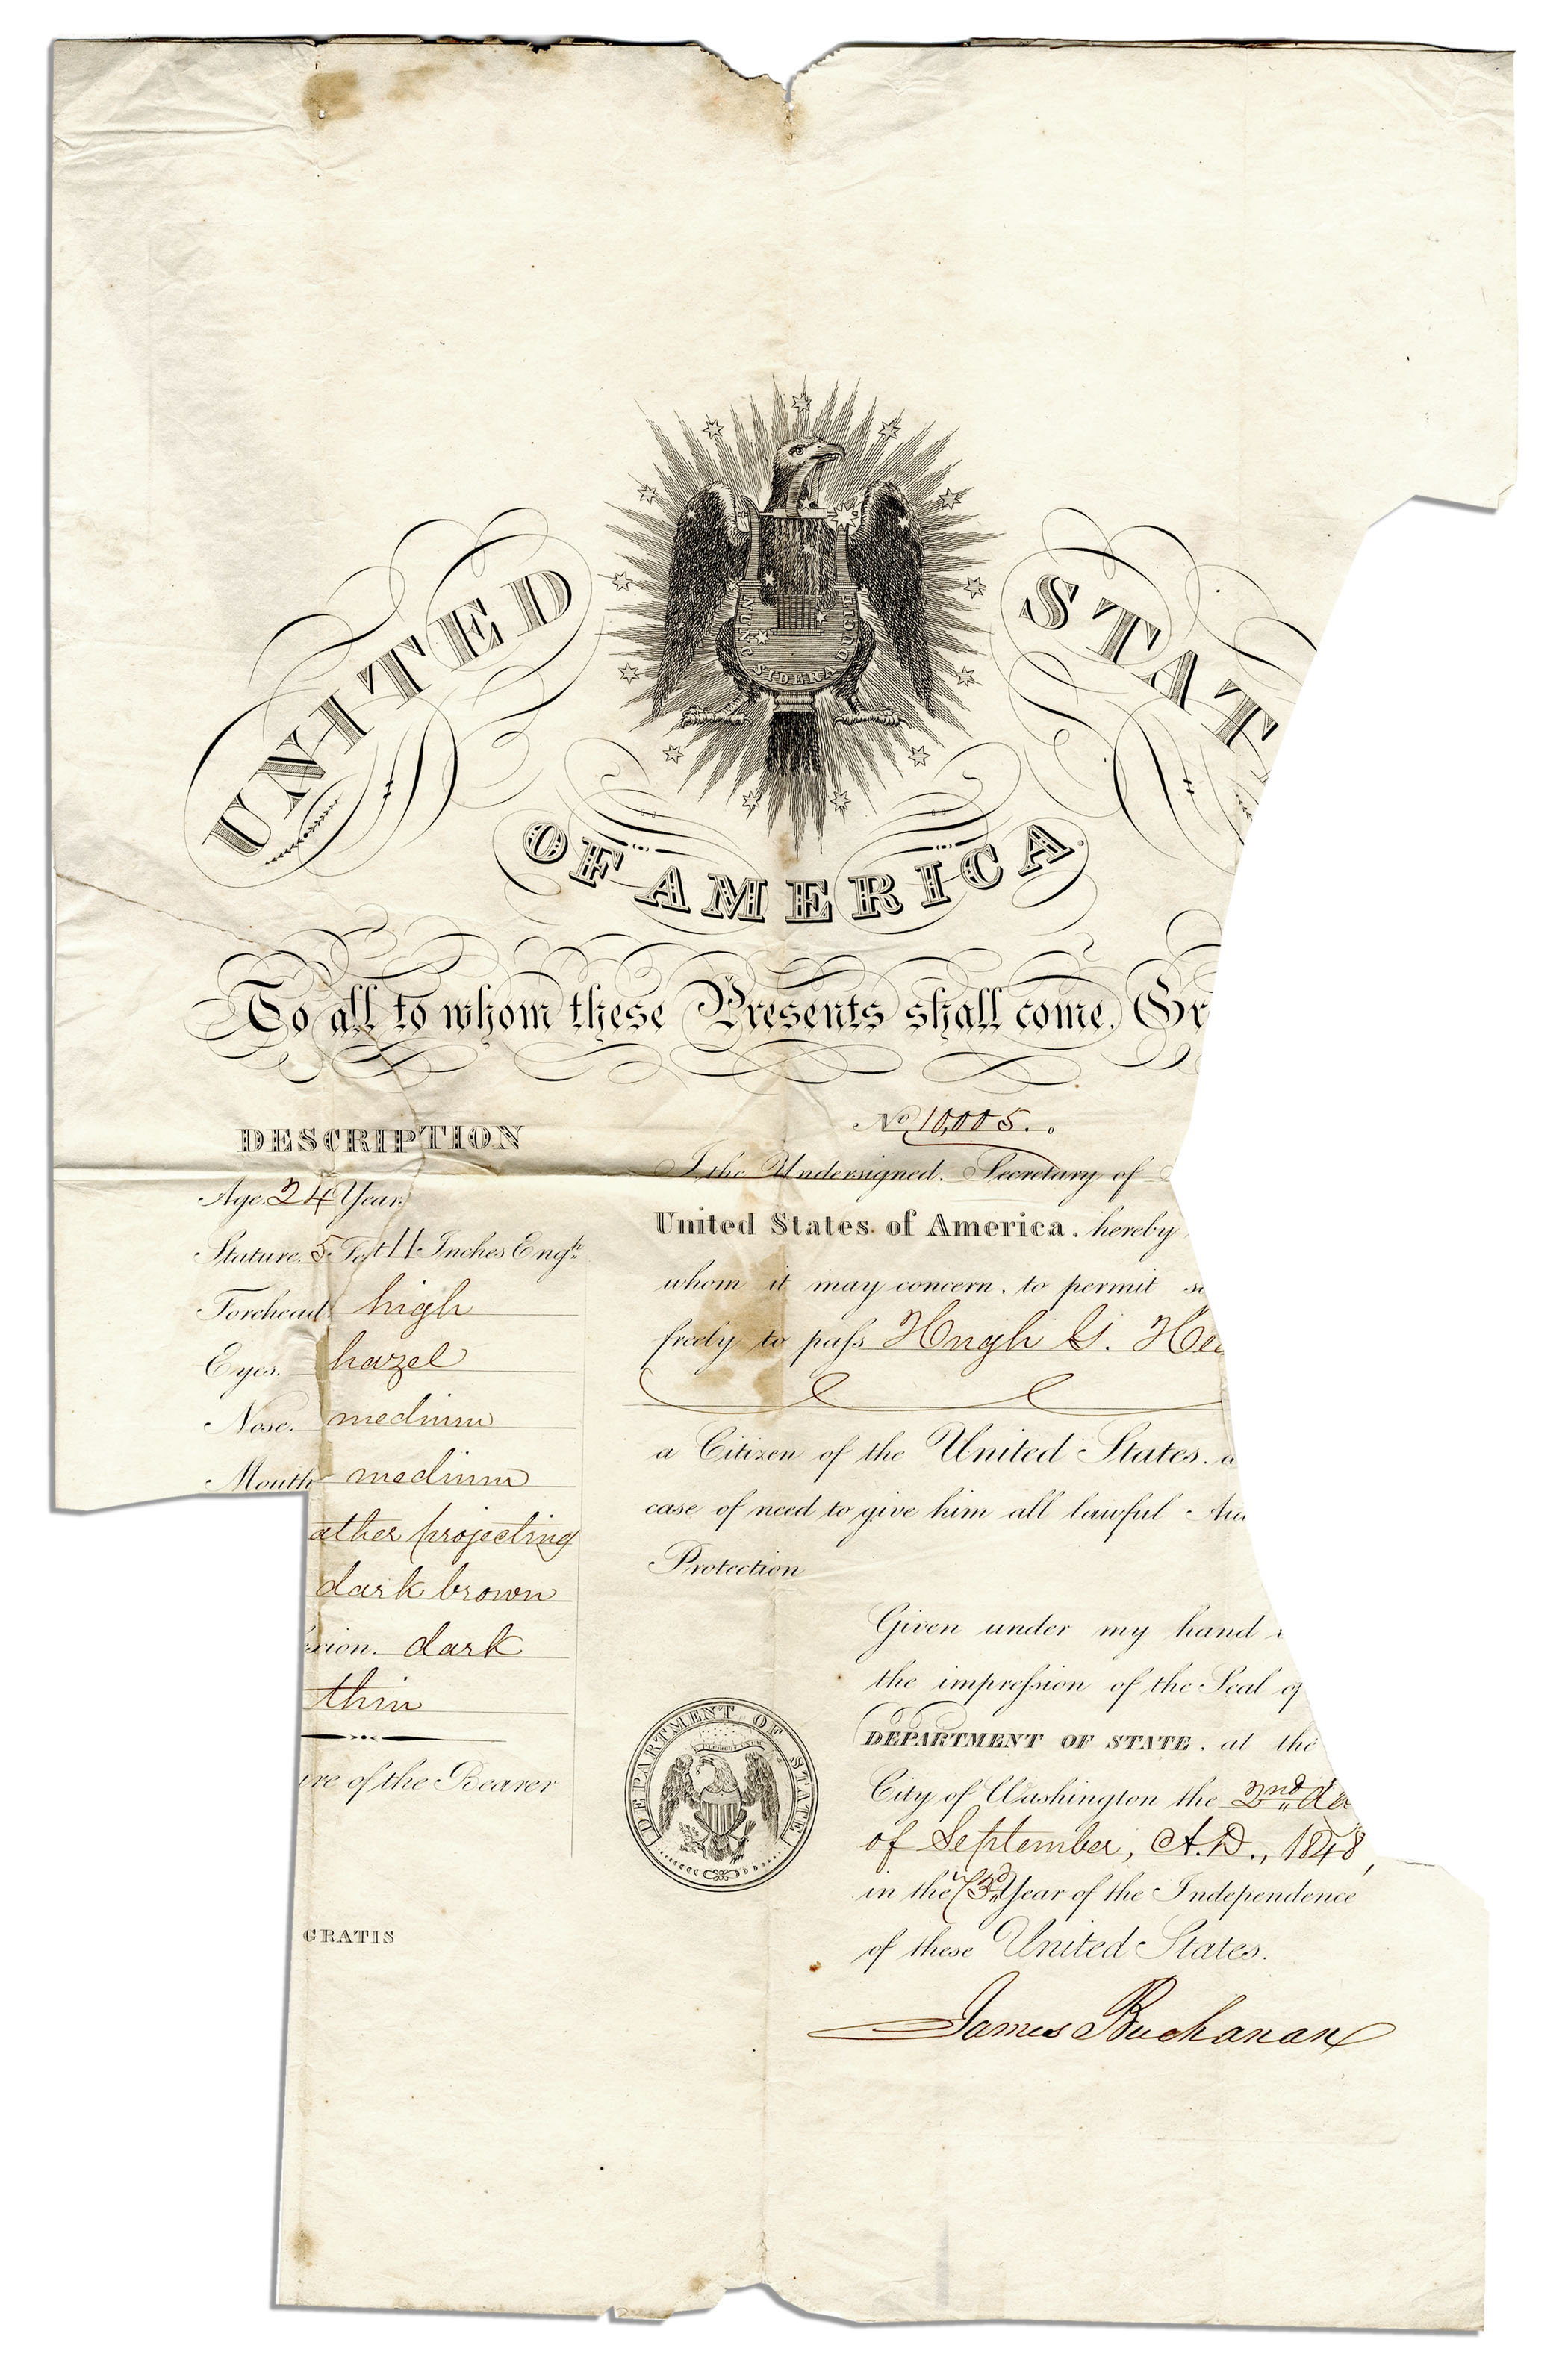 UNITED STAT
NUNC SIDERA DUCIT
OF AMERICA.
To all to whom these Presents shall come. Gr
DESCRIPTION
Age. 24 Years
Stature. 5 Feet 11 Inches Engh.
Forehead. high
Eyes. hazel
Nose. medium
Mouth medium
ather projecting
dark brown
xion. dark
thin
ure of the Bearer
GRATIS
No. 10,005.
I the Undersigned. Secretary of
United States of America. hereby
whom it may concern. to permit
freely to pass Hugh G.
a Citizen of the United States.
case of need to give him all lawful
Protection
Given under my hand
the impression of the Seal of
DEPARTMENT OF STATE. at the
City of Washington the 2nd da
of September, A.D., 1848,
in the 73d Year of the Independence
of these United States.
James Buchanan
DEPARTMENT OF STATE